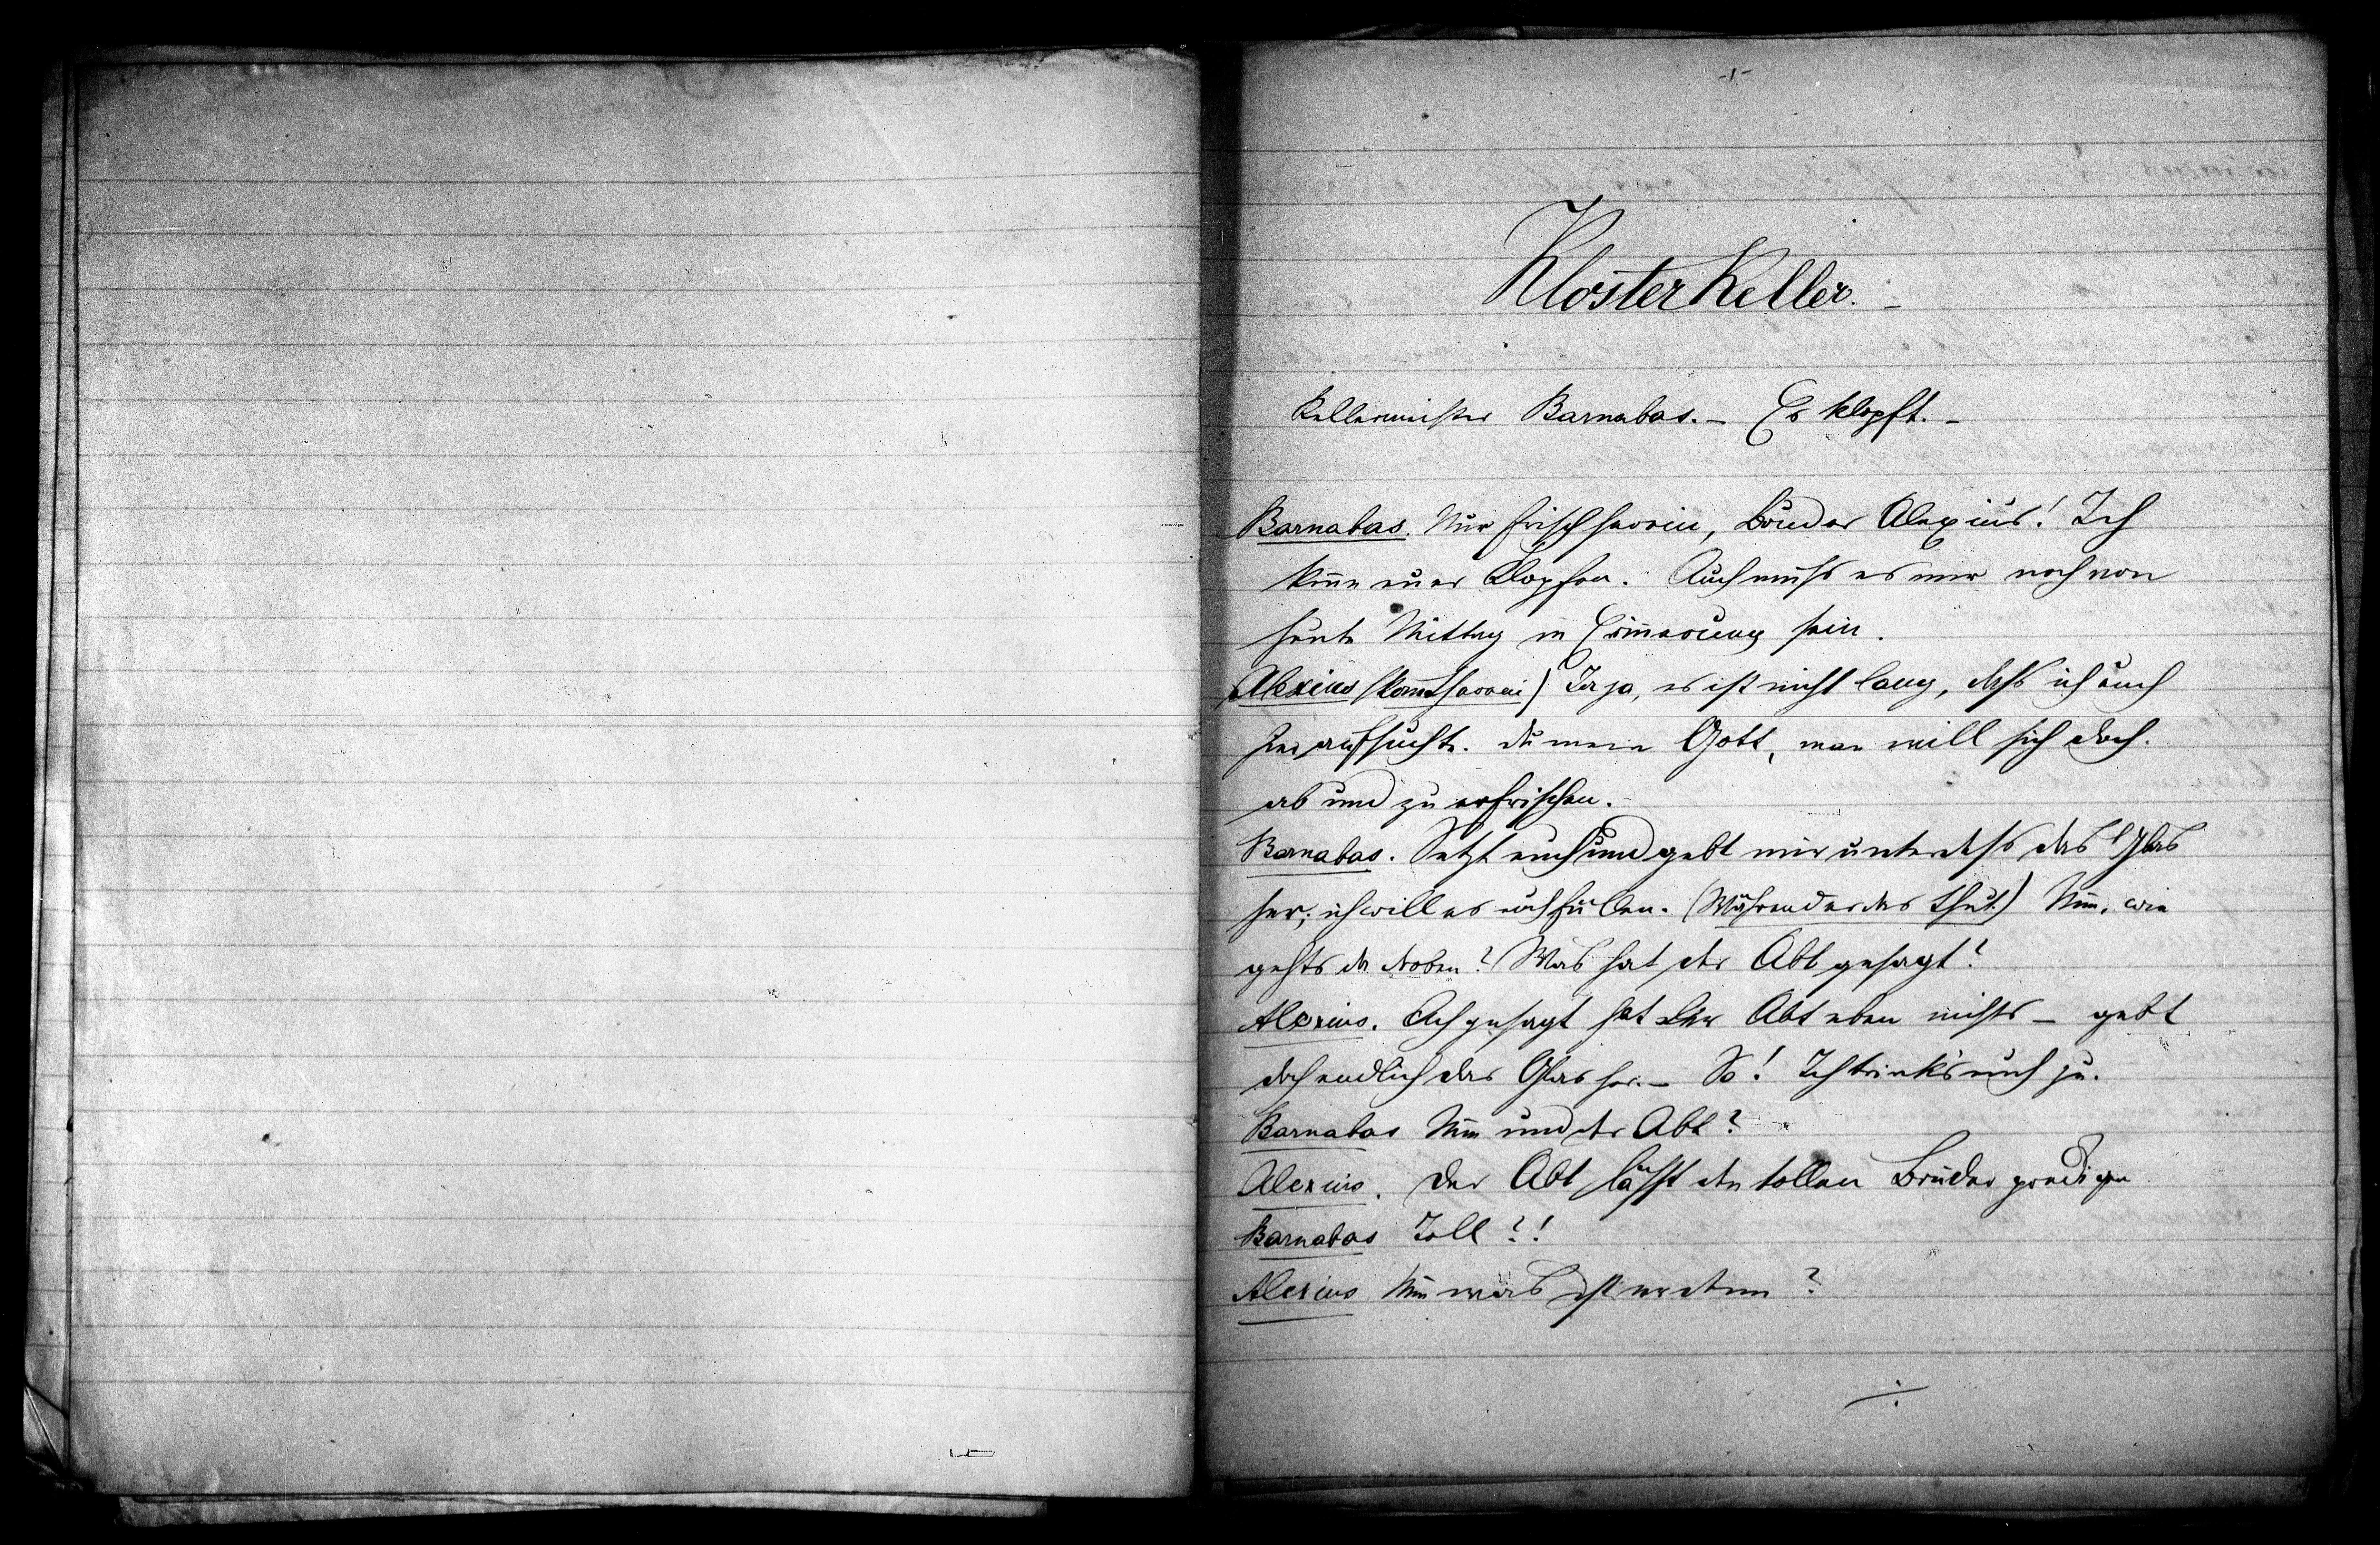 -1-
Klosterkeller. -
Kellermeister Barnabas. - Es klopft. -
Barnabas. Nur frisch herein, Bruder Alexius! Ich
kenn euer Klopfen. Auch muss es mir noch von
heute Mittag in Erinnerung sein.
Alexius (kom̄t herein) Ja ja, es ist nicht lang, dass ich euch
hier aufsuchte. du mein Gott, man will sich doch.
ab und zu erfrischen. -
Barnabas. Setzt euch und gebt mir unterdess das Glas
her; ich will es euch füllen. (Während er das thut.) Nun, wie
gehts da droben? Was hat der Abt gesagt?
Alexius. Ach gesagt hat der Abt eben nichts - gebt
doch endlich das Glas her. - So! Ich trink's euch zu.
Barnabas Nun und der Abt?
Alexius. Der Abt lässt den tollen Bruder predigen
Barnabas Toll?!
Alexius Nun was ist er denn?